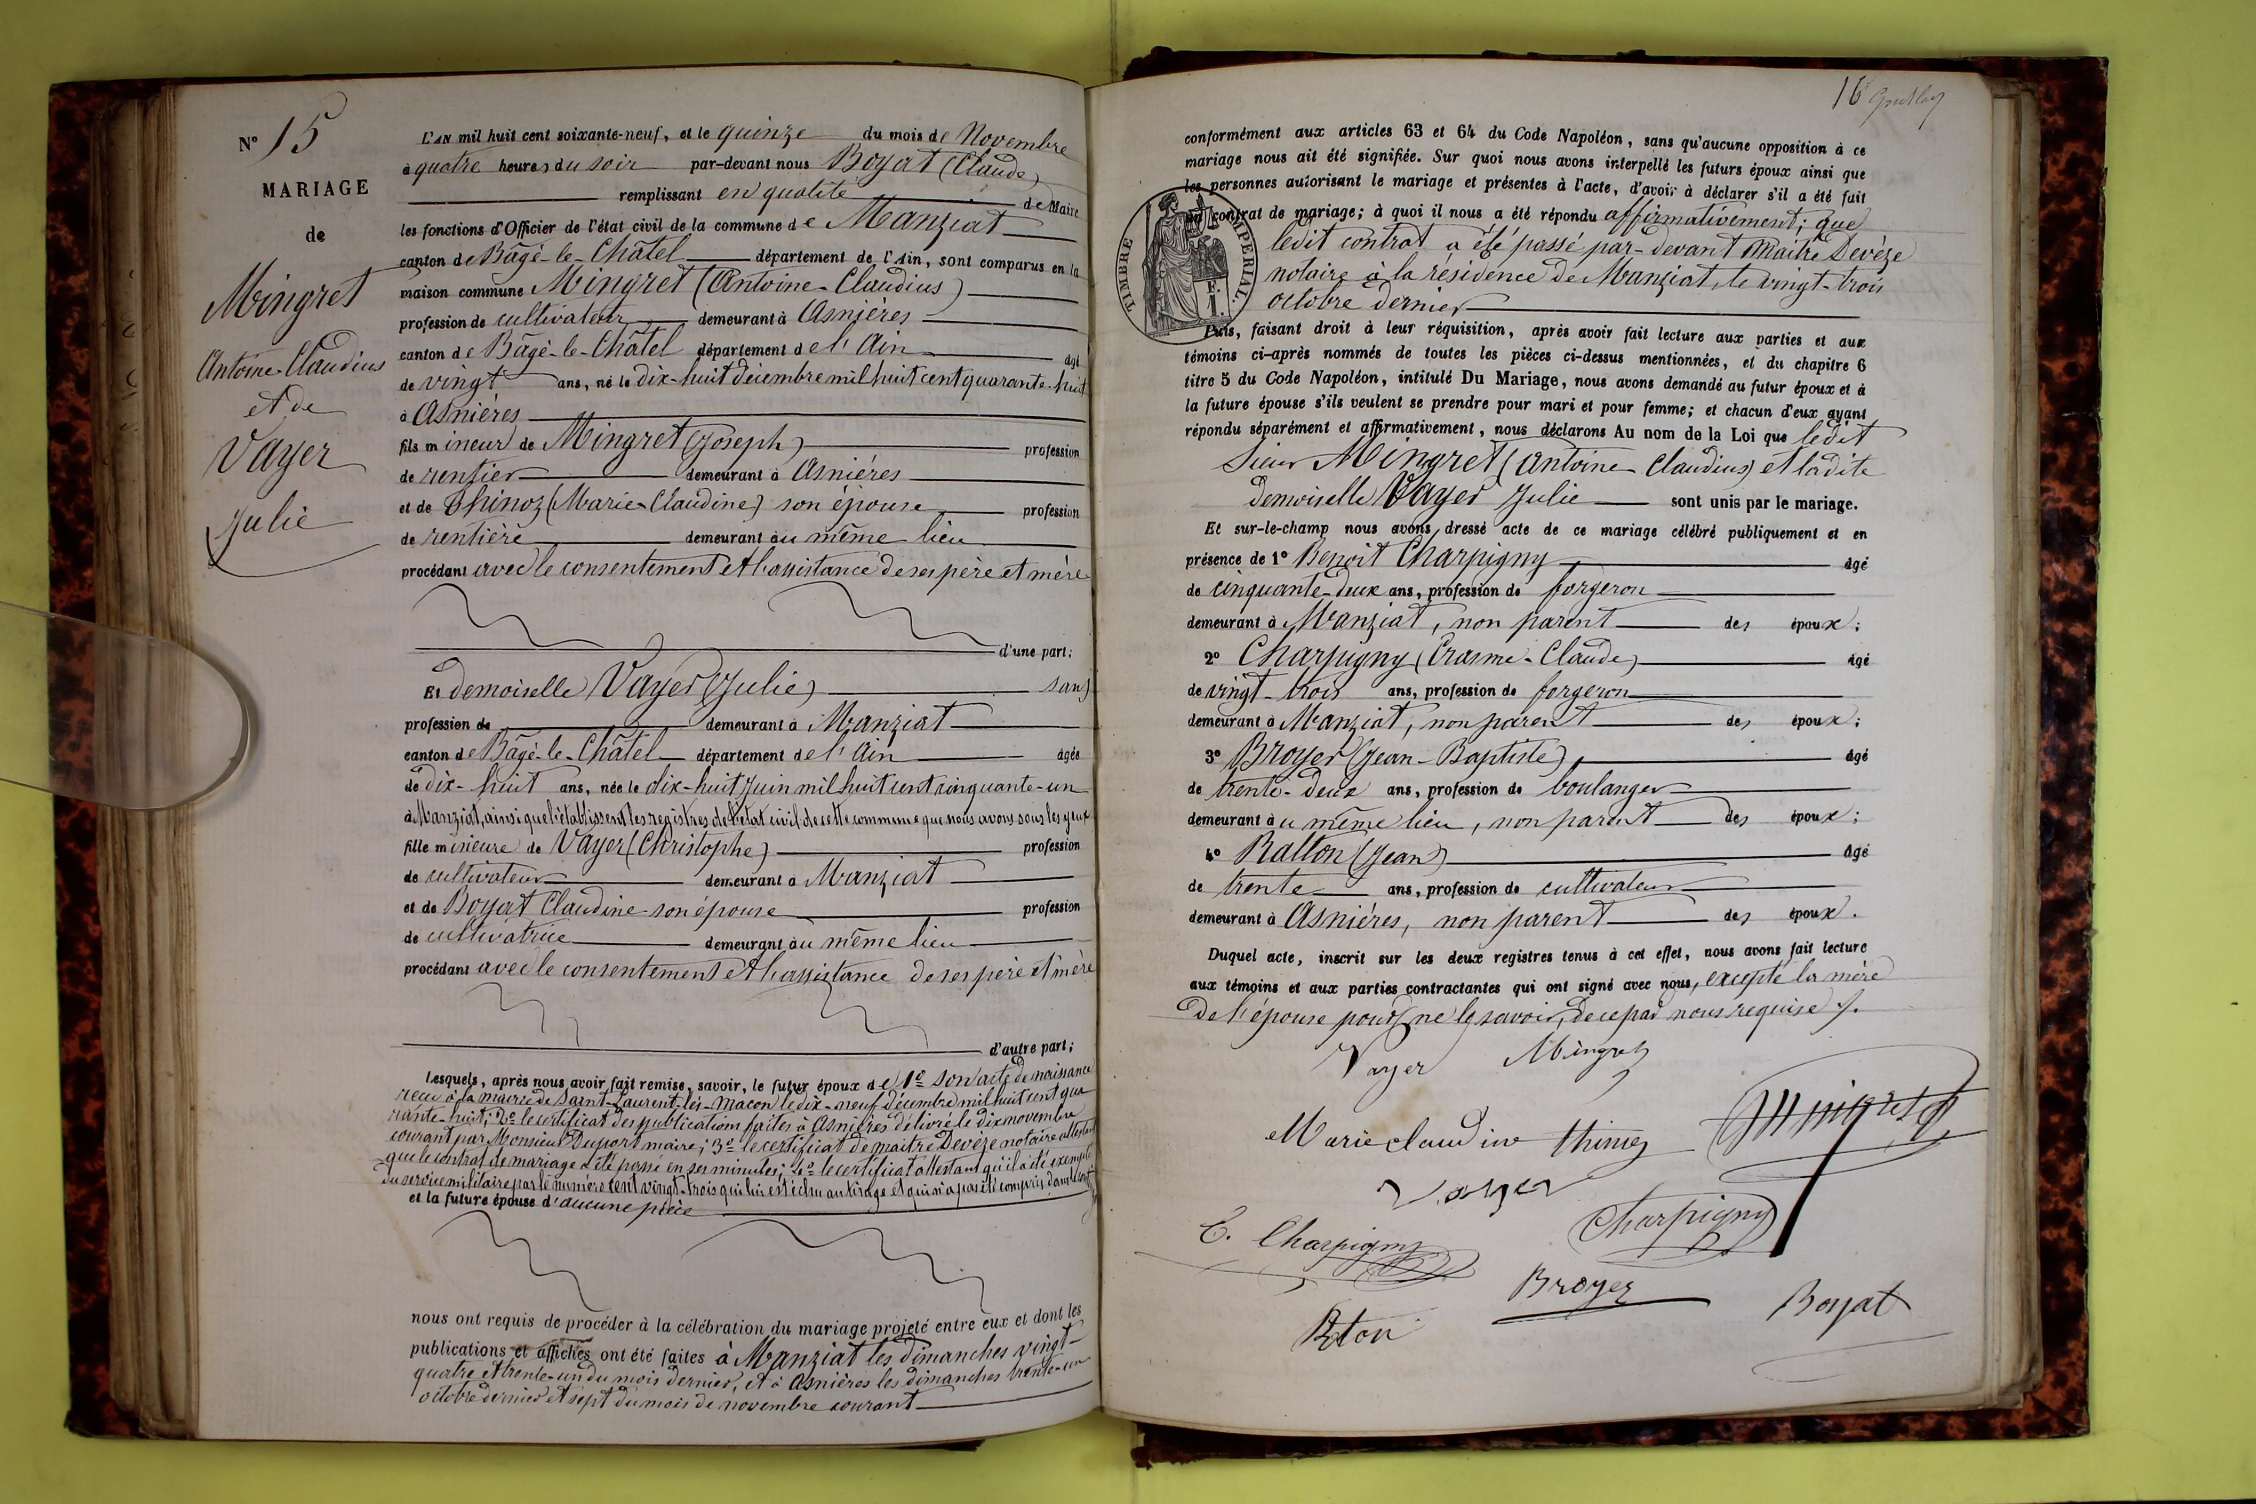 N° 15
MARIAGE
de
Mingret
Antoine-Claudius
et de
Vayer
Julie
L'AN mil huit cent soixante-neuf, et le quinze du mois de Novembre
à quatre heures du soir par-devant nous Boyat (Claude)
remplissant en qualité de Maire
les fonctions d'Officier de l'état civil de la commune de Manziat
canton de Bâgé-le-Châtel département de l'Ain, sont comparus en la
maison commune Mingret (Antoine-Claudius)
profession de cultivateur demeurant à Asnières
canton de Bâgé-le-Châtel département de l'Ain âgé
de vingt ans, né le dix-huit décembre mil huit cent quarante-huit
à Asnières
fils mineur de Mingret (Joseph) profession
de rentier demeurant à Asnières
et de Thinoz (Marie-Claudine) son épouse profession
de rentière demeurant au même lieu
procédant avec le consentement et l'assistance de ses père et mère
d'une part;
Et demoiselle Vayer (Julie) sans
profession de demeurant à Manziat
canton de Bâgé-le-Châtel département de l'Ain âgée
de dix-huit ans, née le dix-huit Juin mil huit cent cinquante-un
à Manziat, ainsi que l'établissent les registres de l'état civil de cette commune que nous avons sous les yeux
fille mineure de Vayer (Christophe) profession
de cultivateur demeurant à Manziat
et de Boyat Claudine son épouse profession
de cultivatrice demeurant au même lieu
procédant avec le consentement et l'assistance de ses père et mère
d'autre part;
Lesquels, après nous avoir fait remise, savoir, le futur époux de 1° son acte de naissance
reçu à la mairie de Saint-Laurent-lès-Macon le dix-neuf décembre mil huit cent qua
rante-huit; 2° le certificat des publications faites à Asnières délivré le dix novembre
courant par Monsieur Duport maire; 3° le certificat de maitre Devèze notaire attestant
que le contrat de mariage a été passé en ses minutes; 4° le certificat attestant qu'il a été exempté
du service militaire par le numéro cent vingt-trois qui lui est échu au tirage et qui n'a pas été compris dans le cont
et la future épouse d'aucune pièce
nous ont requis de procéder à la célébration du mariage projeté entre eux et dont les
publications et affiches ont été faites à Manziat les dimanches vingt-
quatre et trente-un du mois dernier, et à Asnières les dimanches trente-un
octobre dernier et sept du mois de novembre courant
16
conformément aux articles 63 et 64 du Code Napoléon, sans qu'aucune opposition à ce
mariage nous ait été signifiée. Sur quoi nous avons interpellé les futurs époux ainsi que
les personnes autorisant le mariage et présentes à l'acte, d'avoir à déclarer s'il a été fait
contrat de mariage; à quoi il nous a été répondu affirmativement; que
ledit contrat a été passé par-devant Maitre Devèze
notaire à la résidence de Manziat, le vingt-trois
octobre dernier
TIMBRE IMPERIAL.
E.
I.
Puis, faisant droit à leur réquisition, après avoir fait lecture aux parties et aux
témoins ci-après nommés de toutes les pièces ci-dessus mentionnées, et du chapitre 6
titre 5 du Code Napoléon, intitulé Du Mariage, nous avons demandé au futur époux et à
la future épouse s'ils veulent se prendre pour mari et pour femme; et chacun d'eux ayant
répondu séparément et affirmativement, nous déclarons Au nom de la Loi que ledit
Sieur Mingret (Antoine-Claudius) et ladite
demoiselle Vayer Julie sont unis par le mariage.
Et sur-le-champ nous avons dressé acte de ce mariage célébré publiquement et en
présence de 1° Benoit Charpigny âgé
de cinquante-deux ans, profession de forgeron
demeurant à Manziat, non parent des époux;
2° Charpigny (Erasme-Claude) âgé
de vingt-trois ans, profession de forgeron
demeurant à Manziat, non parent des époux;
3° Broyer (Jean-Baptiste) âgé
de trente-deux ans, profession de boulanger
demeurant au même lieu, non parent des époux;
4° Ratton (Jean) âgé
de trente ans, profession de cultivateur
demeurant à Asnières, non parent des époux.
Duquel acte, inscrit sur les deux registres tenus à cet effet, nous avons fait lecture
aux témoins et aux parties contractantes qui ont signé avec nous, excepté la mère
de l'épouse pour ne le savoir, de ce par nous requise
Vayer Mingret
Marie claudine thinoz Mingret
Vayer
E. Charpigny Charpigny
Broyer Boyat